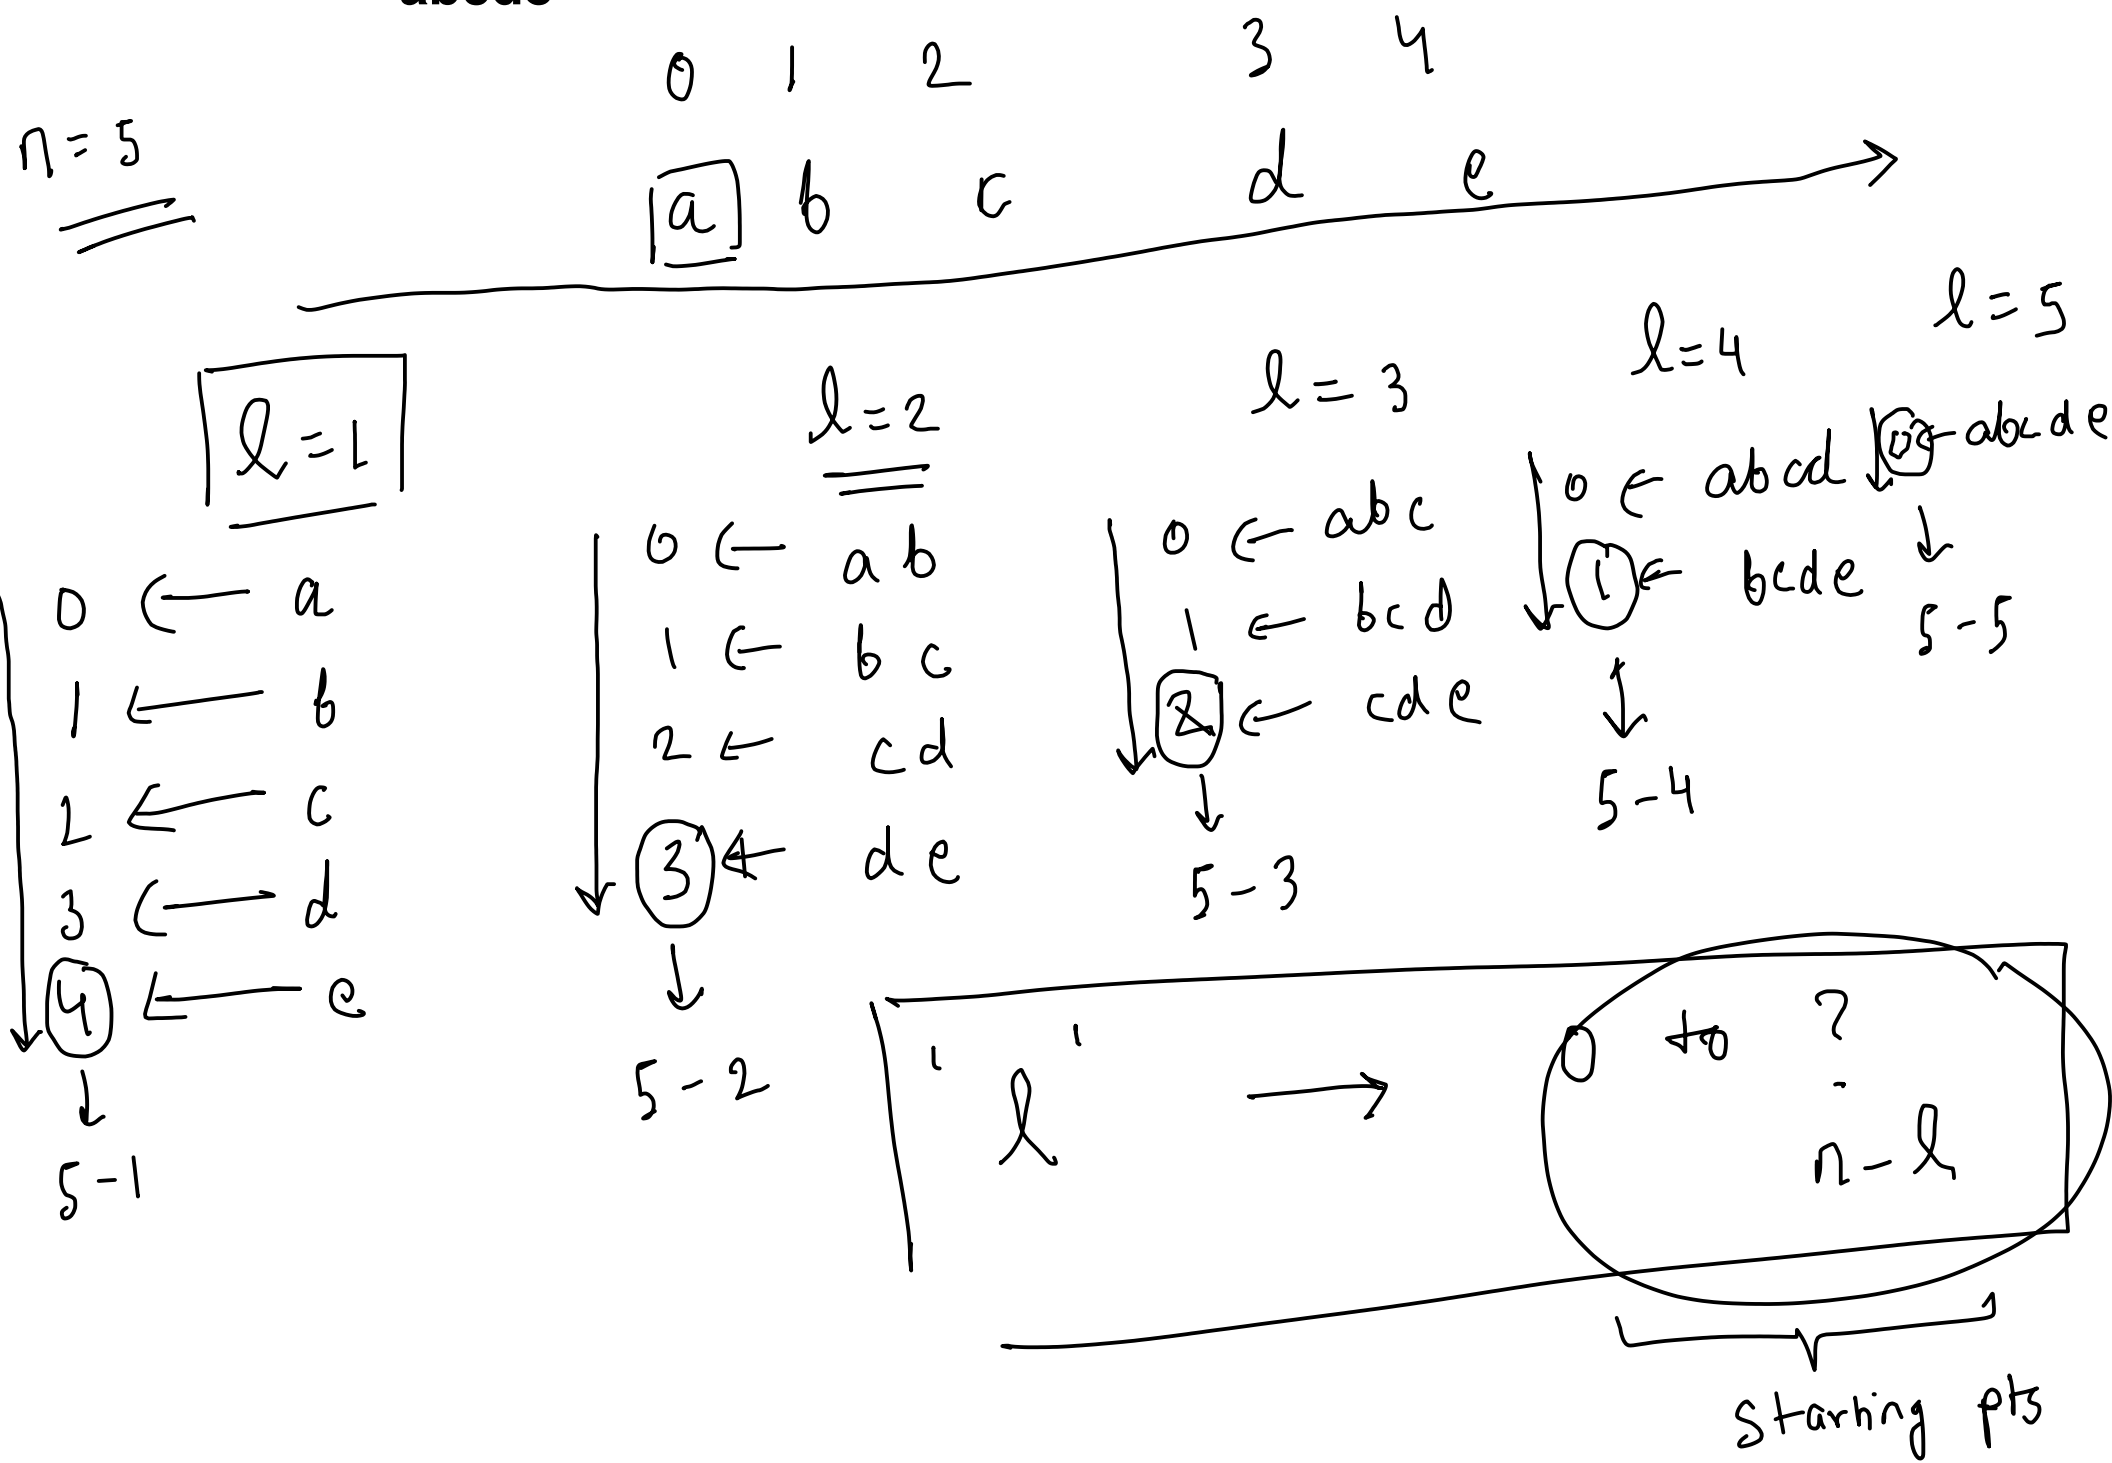 0 1 2 3 4
n = 5
a b c d e
l = 1
0 ← a
1 ← b
2 ← c
3 ← d
4 ← e
↓
5 - 1
l = 2
0 ← ab
1 ← bc
2 ← cd
3 ← de
↓
5 - 2
l = 3
0 ← abc
1 ← bcd
2 ← cde
↓
5 - 3
l = 4
0 ← abcd
1 ← bcde
↓
5 - 4
l = 5
0 ← abcde
↓
5 - 5
' l ' → 0 to ?
n - l
starting pts